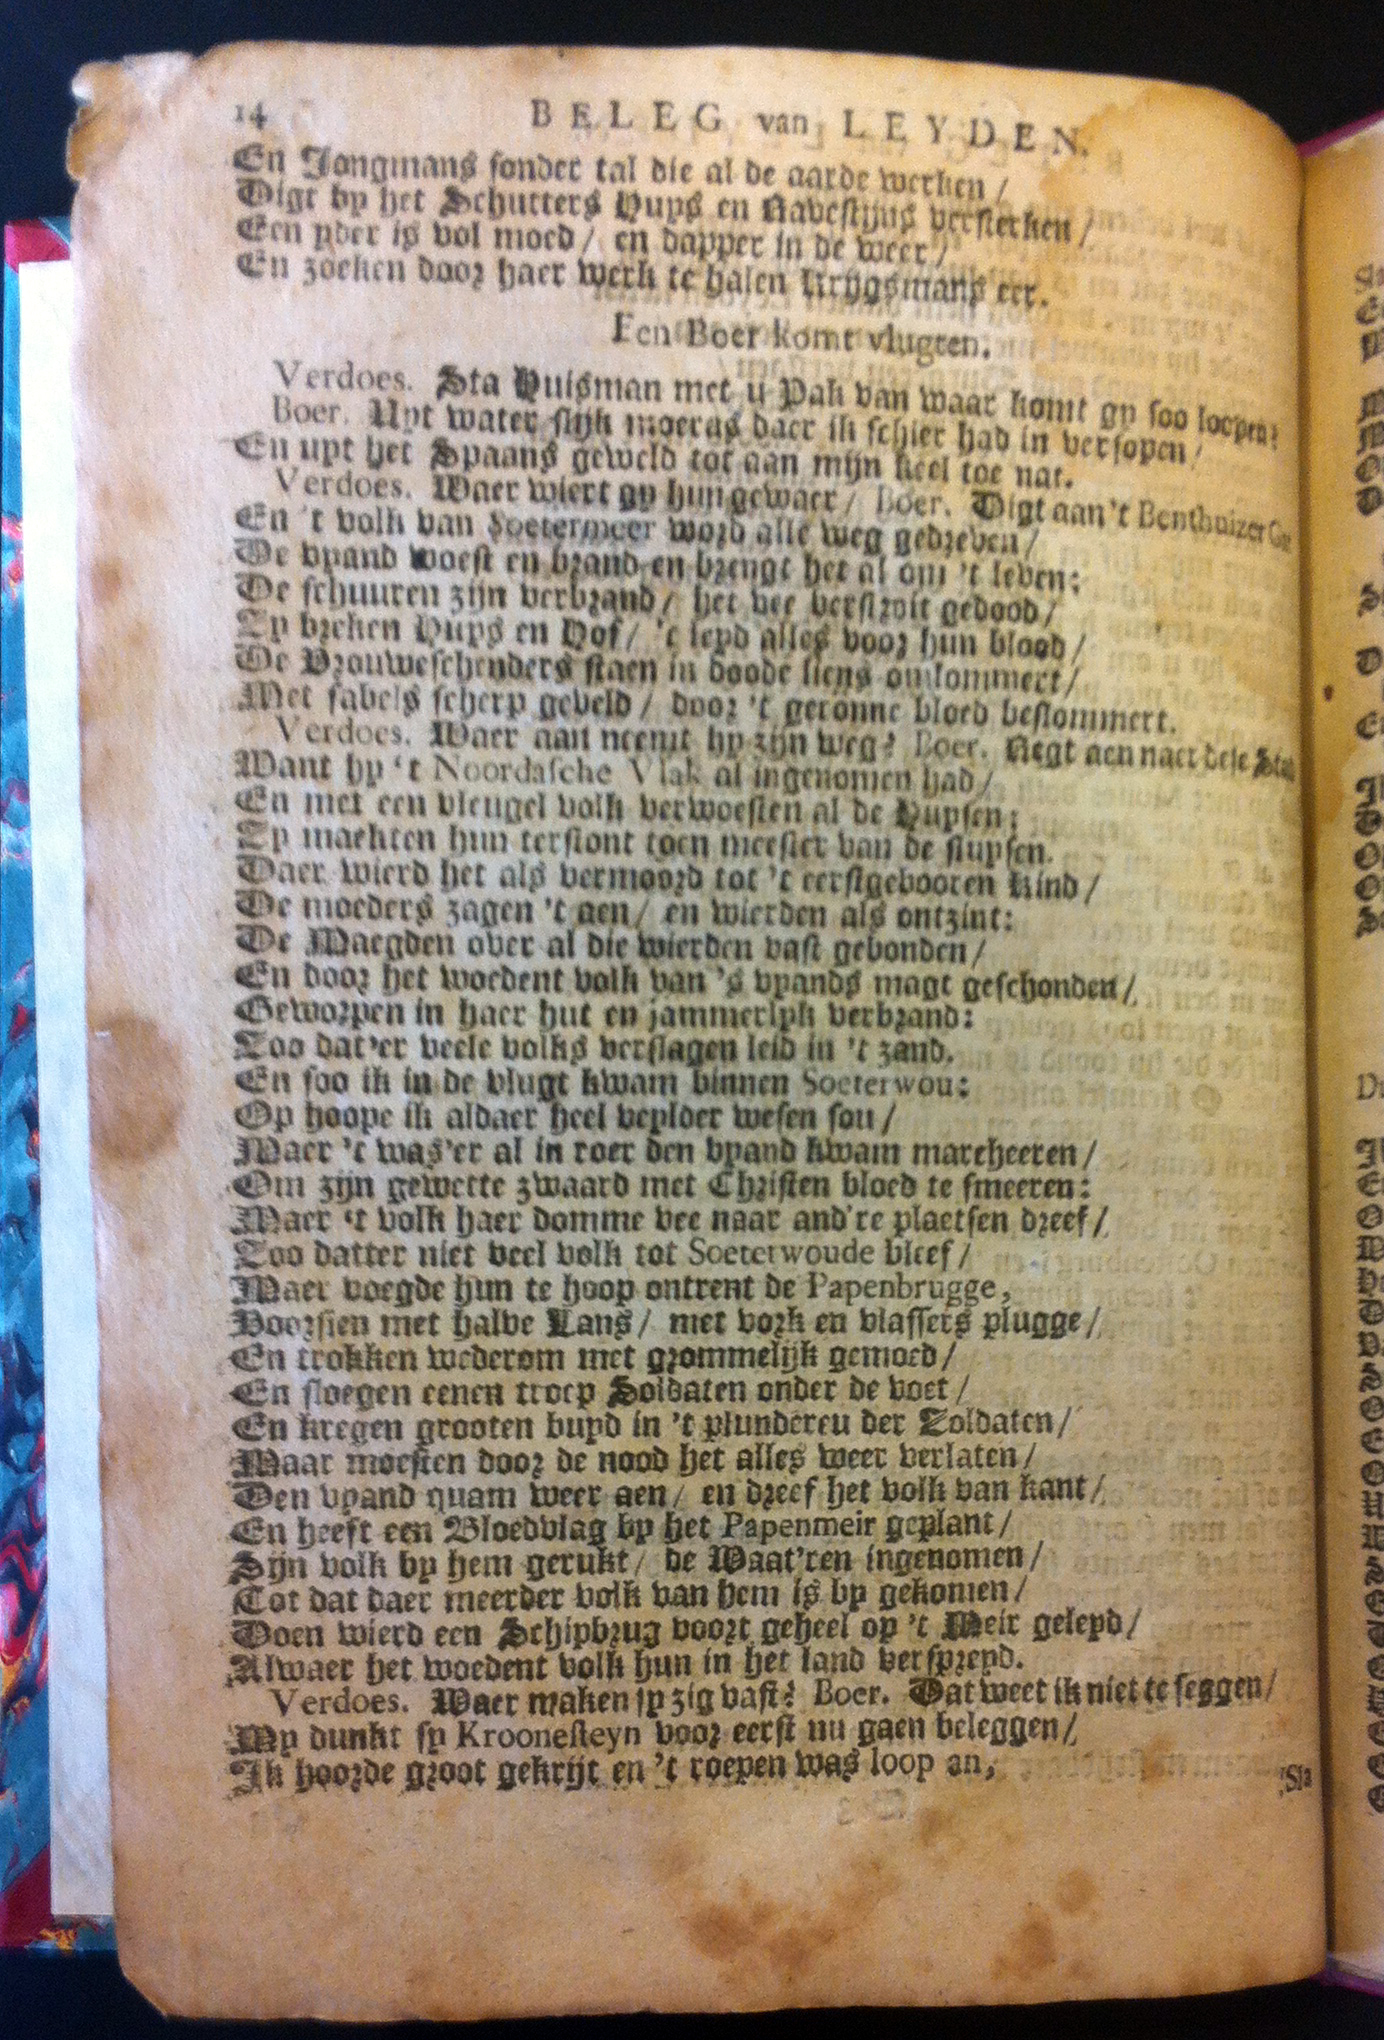 14 BELEG van LEYDEN.
En Jongmans sonder tal die al de aarde werken /
Digt by het Schutters Huys en Ravestijns versterken /
Een yder is vol moed / en dapper in de weer /
En zoeken door haer werk te halen Krijgsmans eer.
Een Boer komt vlugten.
Verdoes. Sta Huisman met u Pak van waar komt gy soo loopen?
Boer. Uyt water slijk moeras daer ik schier had in versopen /
En uyt het Spaans geweld tot aan mijn keel toe nat.
Verdoes. Waer wiert gy hun gewaer / Boer. Digt aan 't Benthuizer
En 't volk van Soetermeer word alle weg gedreven /
De vyand woest en brand en brengt het al om 't leven:
De schuuren zijn verbrand / het vee verstroit gedood /
Sy breken Huys en Hof / 't leyd alles voor hun bloed /
De Vrouweschenders staen in doode liens omlommert /
Met sabels scherp geveld / door 't geronne bloed beslommert.
Verdoes. Waer aan neemt hy zijn weg? Boer. Regt aen naer dese Stad
Want hy 't Noordasche Vlak al ingenomen had /
En met een vleugel volk verwoesten al de Huysen;
Sy maekten hun terstont toen meester van de sluysen.
Daer wierd het als vermoord tot 't eerstgebooren Kind /
De moeders zagen 't aen / en wierden als ontzint:
De Maegden over al die wierden vast gebonden /
En door het woedent volk van 's vyands magt geschonden /
Geworpen in haer hut en jammerlyk verbrand:
Soo dat'er veele volks verslagen leid in 't zand.
En soo ik in de vlugt kwam binnen Soeterwou:
Op hoope ik aldaer heel veylder wesen sou /
Maer 't was'er al in roer den vyand kwam marcheeren /
Om zijn gewette zwaard met Christen bloed te smeeren:
Maer 't volk haer domme vee naar and're plaetsen dreef /
Soo datter niet veel volk tot Soeterwoude bleef /
Maer voegde hun te hoop ontrent de Papenbrugge,
Voorsien met halve Lans / met vork en vlassers plugge /
En trokken wederom met grommelijk gemoed /
En sloegen eenen troep Soldaten onder de voet /
En kregen grooten buyd in 't plundereu der Soldaten /
Maar moesten door de nood het alles weer verlaten /
Den vyand quam weer aen / en dreef het volk van kant /
En heeft een Bloedvlag by het Papenmeir geplant /
Sijn volk by hem gerukt / de Waat'ren ingenomen /
Tot dat daer meerder volk van hem is by gekomen /
Doen wierd een Schipbrug voort geheel op 't Meir geleyd /
Alwaer het woedent volk hun in het land verspreyd.
Verdoes. Waer maken sy zig vast? Boer. Dat weet ik niet te seggen /
My dunkt sy Kroonesteyn voor eerst nu gaen beleggen /
Ik hoorde groot gekrijt en 't roepen was loop an,
Sla